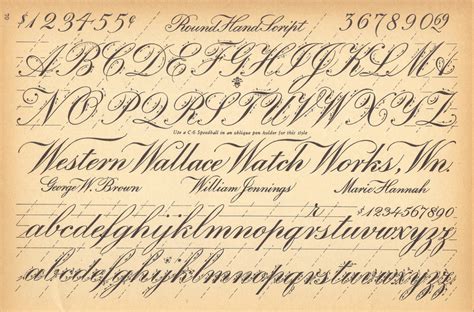 $123455¢ Round Hand Script 36789069
ABCDEFGHIJKLM
NOPQRSTUVWXYZ
Use a C-6 Speedball in an oblique pen holder for this style
Western Wallace Watch Works, Wn.
George W. Brown William Jennings Marie Hannah
r $1234567890
abcdefghijklmnopqrstuvwxyzz
abcdefghijklmnopqrstuvwxyzz